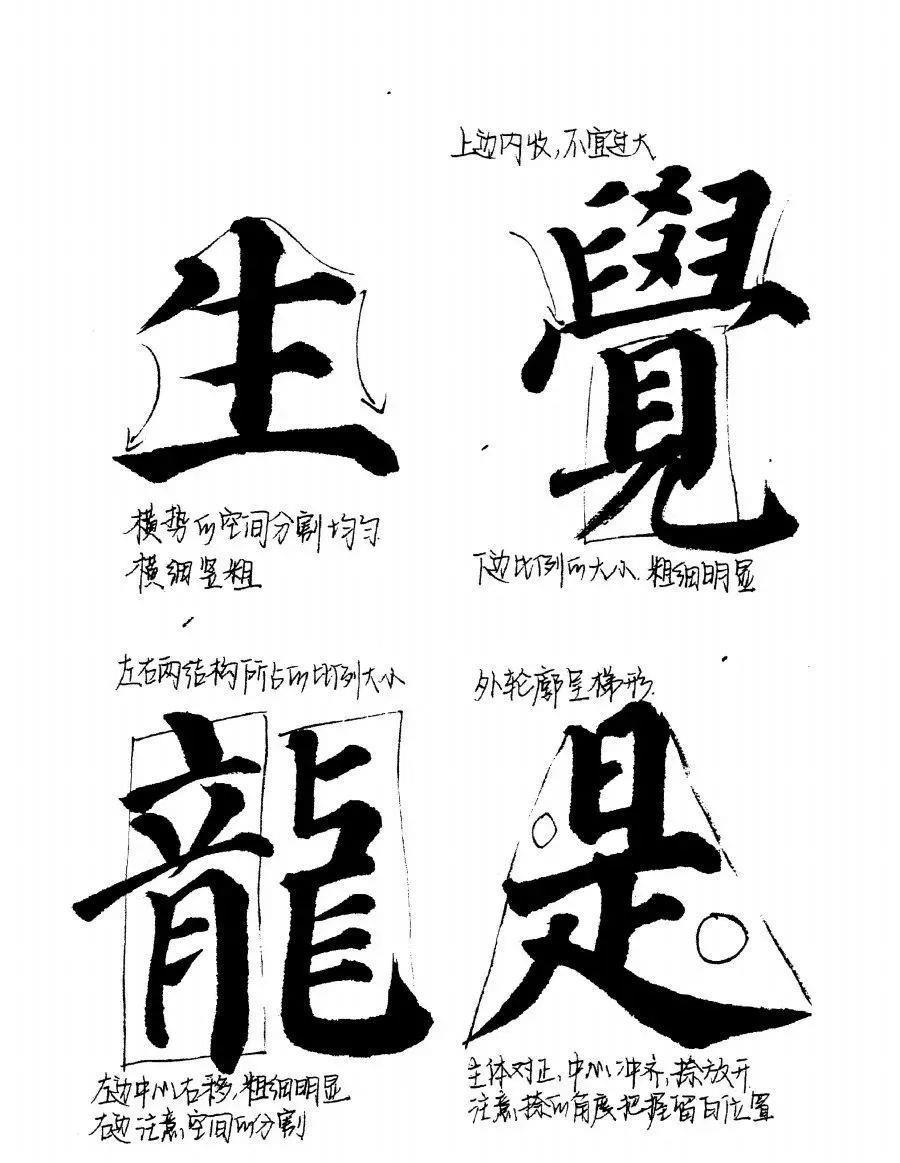 生
横势的空间分割均匀
横细竖粗
上边内收,不宜过大
覺
下边比例的大小.粗细明显
左右两结构所占的比例大小
龍
左边中心右移,粗细明显
右边注意空间的分割
外轮廓呈梯形
是
主体对正,中心冲齐,捺放开
注意捺的角度把握留白位置